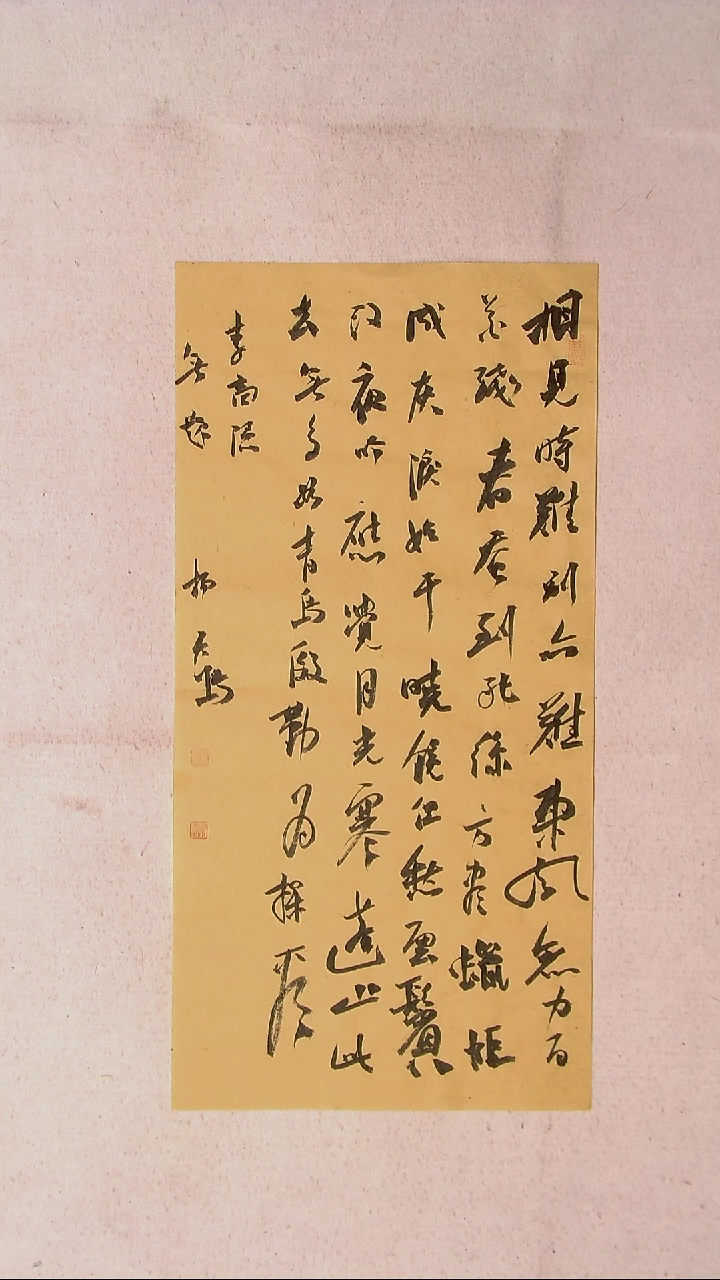 相見時難別亦難東風無力百
花殘春蚕到死絲方盡蠟炬
成灰淚始干曉鏡但愁雲鬢
改夜吟應覺月光寒蓬山此
去無多路青鳥殷勤為探看
李商隱
無題